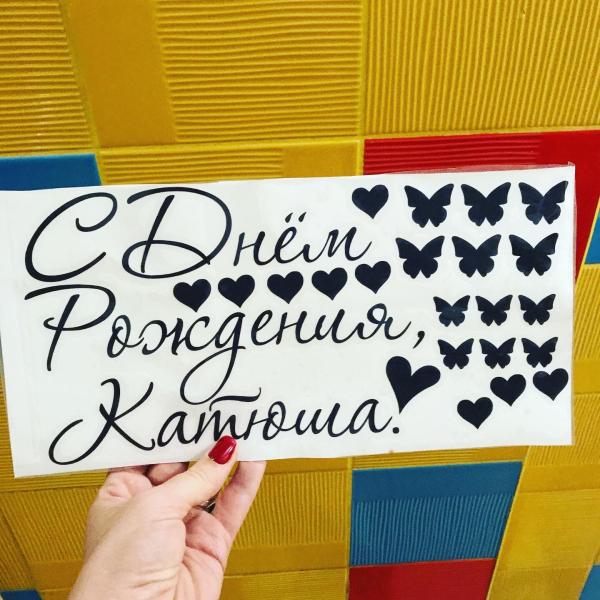 С Днём
Рождения,
Катюша!